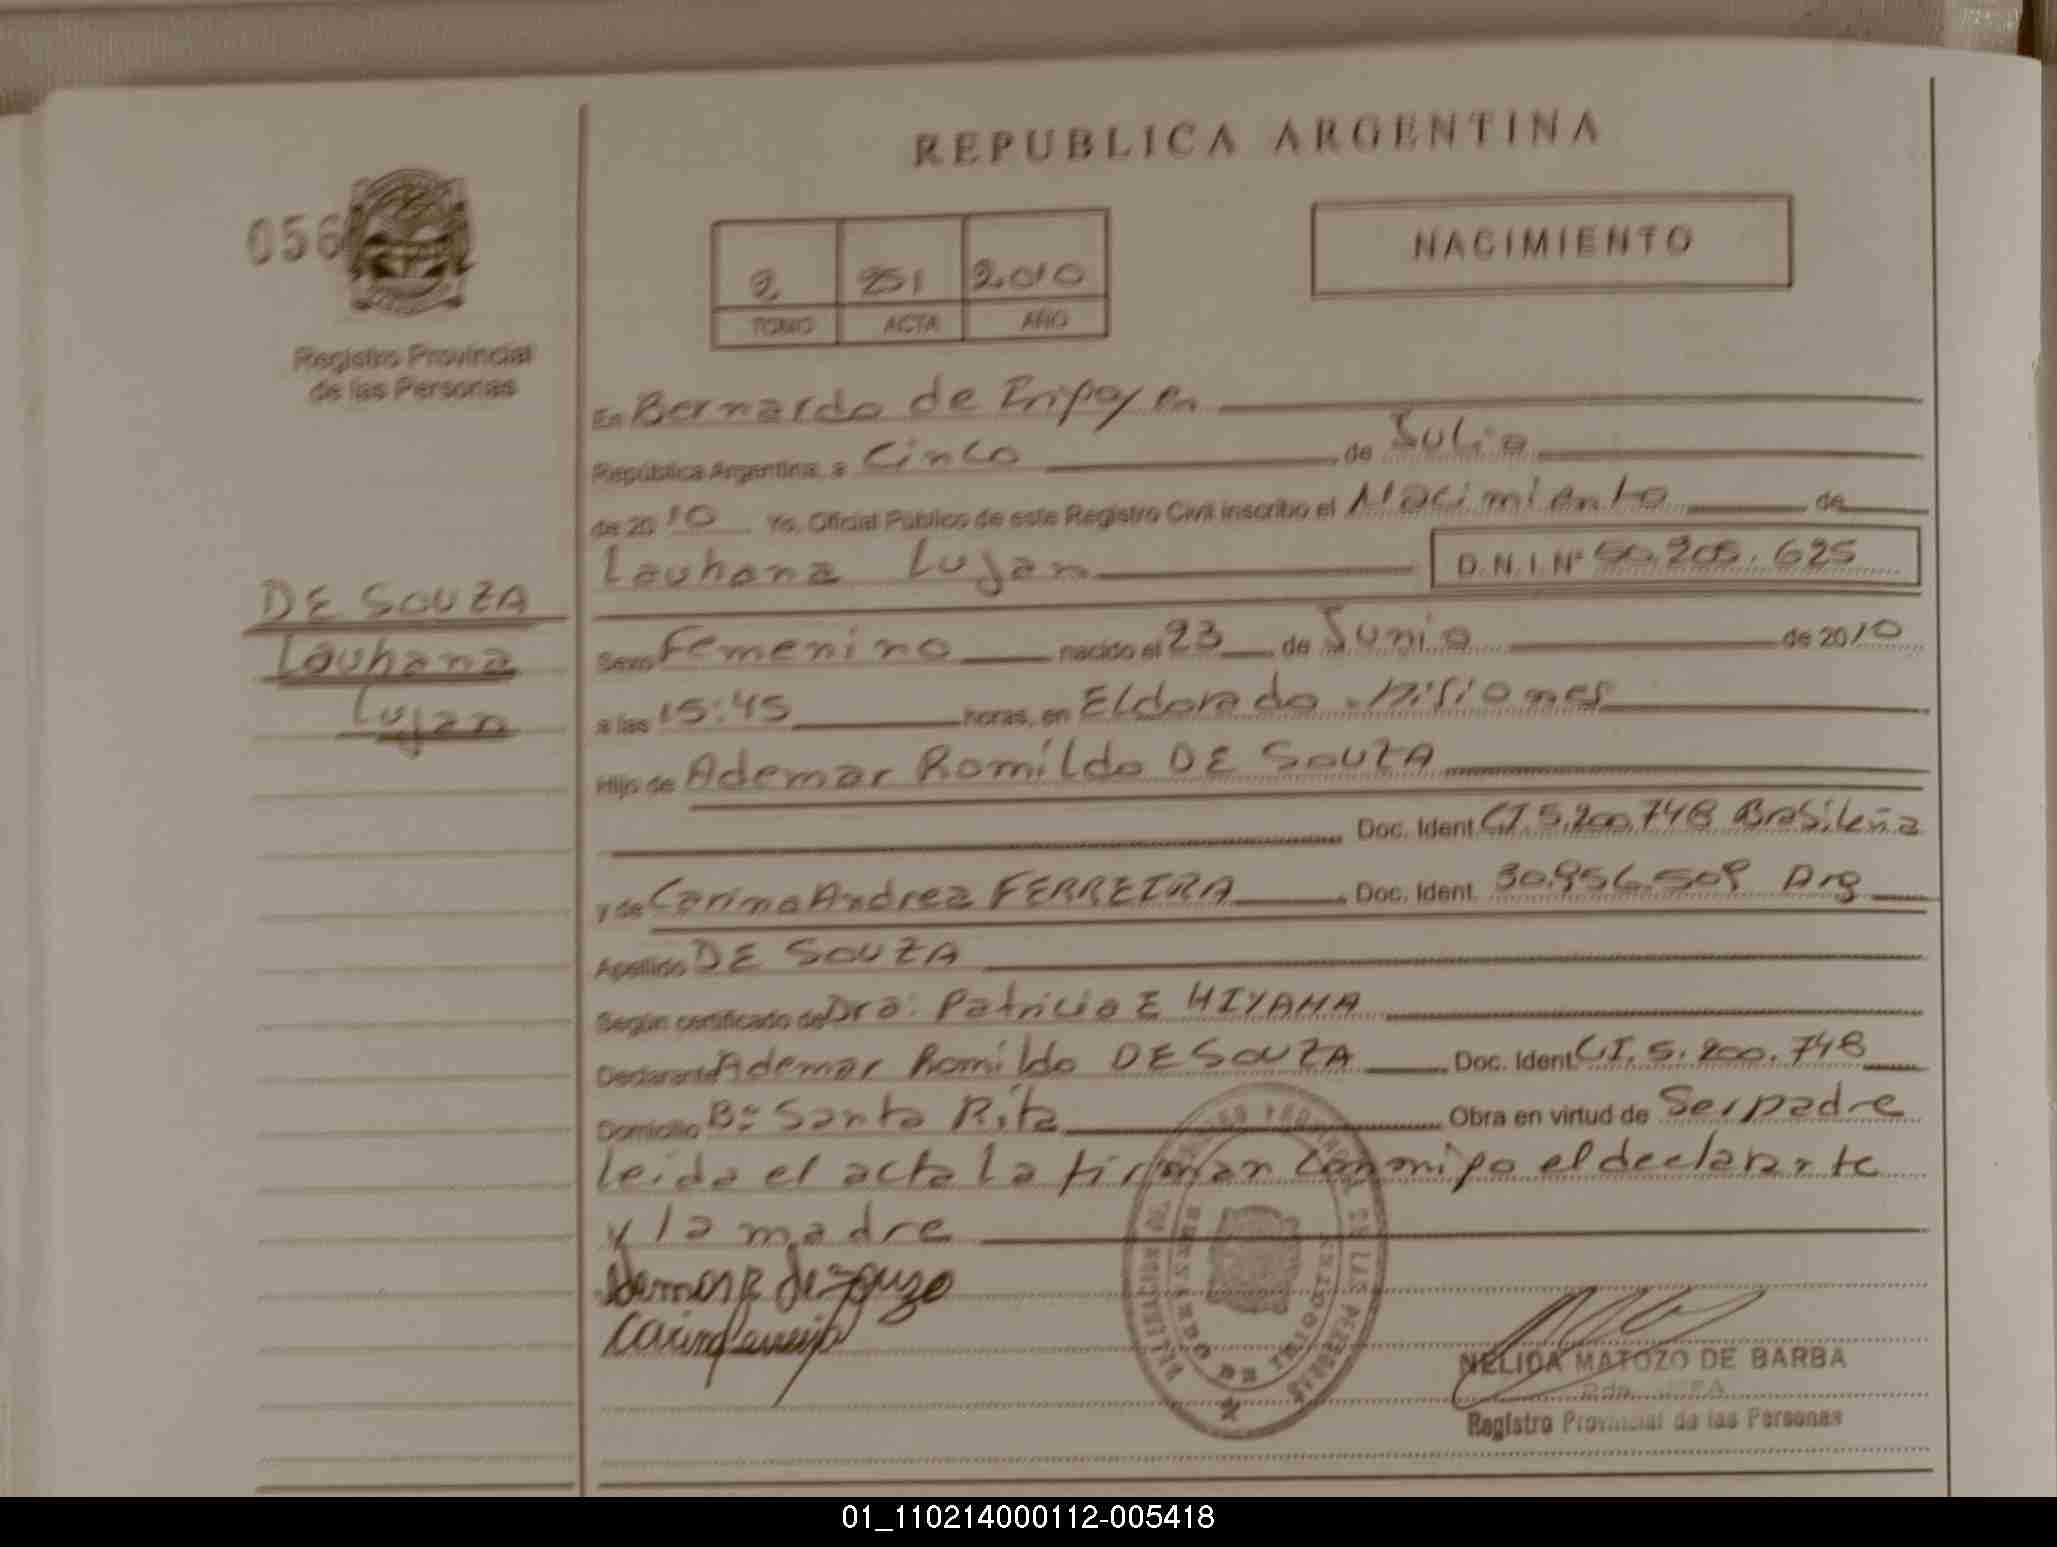 REPUBLICA ARGENTINA
056
NACIMIENTO
2 251 2.010
TOMO ACTA AÑO
Registro Provincial
de las Personas
En Bernardo de Irigoyen
República Argentina, a Cinco de Julio
de 2010 Yo, Oficial Público de este Registro Civil inscribo el Nacimiento de
Lauhana Lujan D.N.I.Nº 50.205.625
DE SOUZA
Lauhana
Lujan
Sexo Femenino nacido el 23 de Junio de 2010
a las 15:45 horas, en Eldorado - Misiones
Hijo de Ademar Romildo DE SOUZA
Doc. Ident CI. 5.200.748 Brasileña
y de Carina Andrea FERREIRA Doc. Ident. 30.956.509 Arg
Apellido DE SOUZA
Según certificado de Dra: Patricia E HIYAMA
Declarante Ademar Romildo DE SOUZA Doc. Ident CI. 5.200.748
Domicilio Bº Santa Rita Obra en virtud de Ser padre
leida el acta La firman conmigo el declarante
y la madre
NELIDA MATOZO DE BARBA
JEFA
Registro Provincial de las Personas
01_110214000112-005418